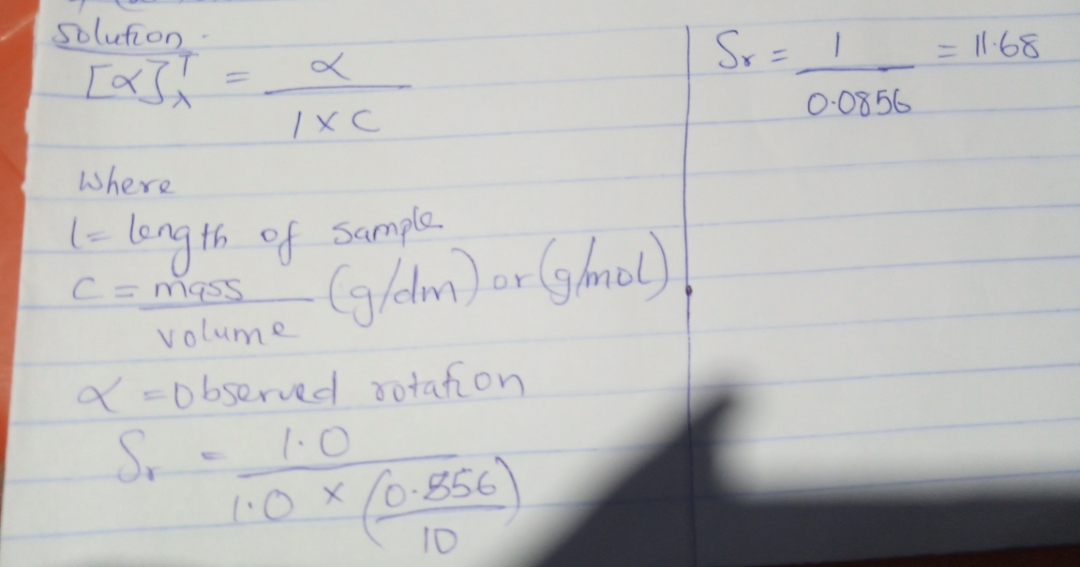 Solution.
[α]Tλ = α / l × C
Where
l = length of sample
C = mass / volume (g/dm) or (g/mol)
α = Observed rotation
Sr = 1.0 / 1.0 × (0.856 / 10)
Sr = 1 / 0.0856 = 11.68